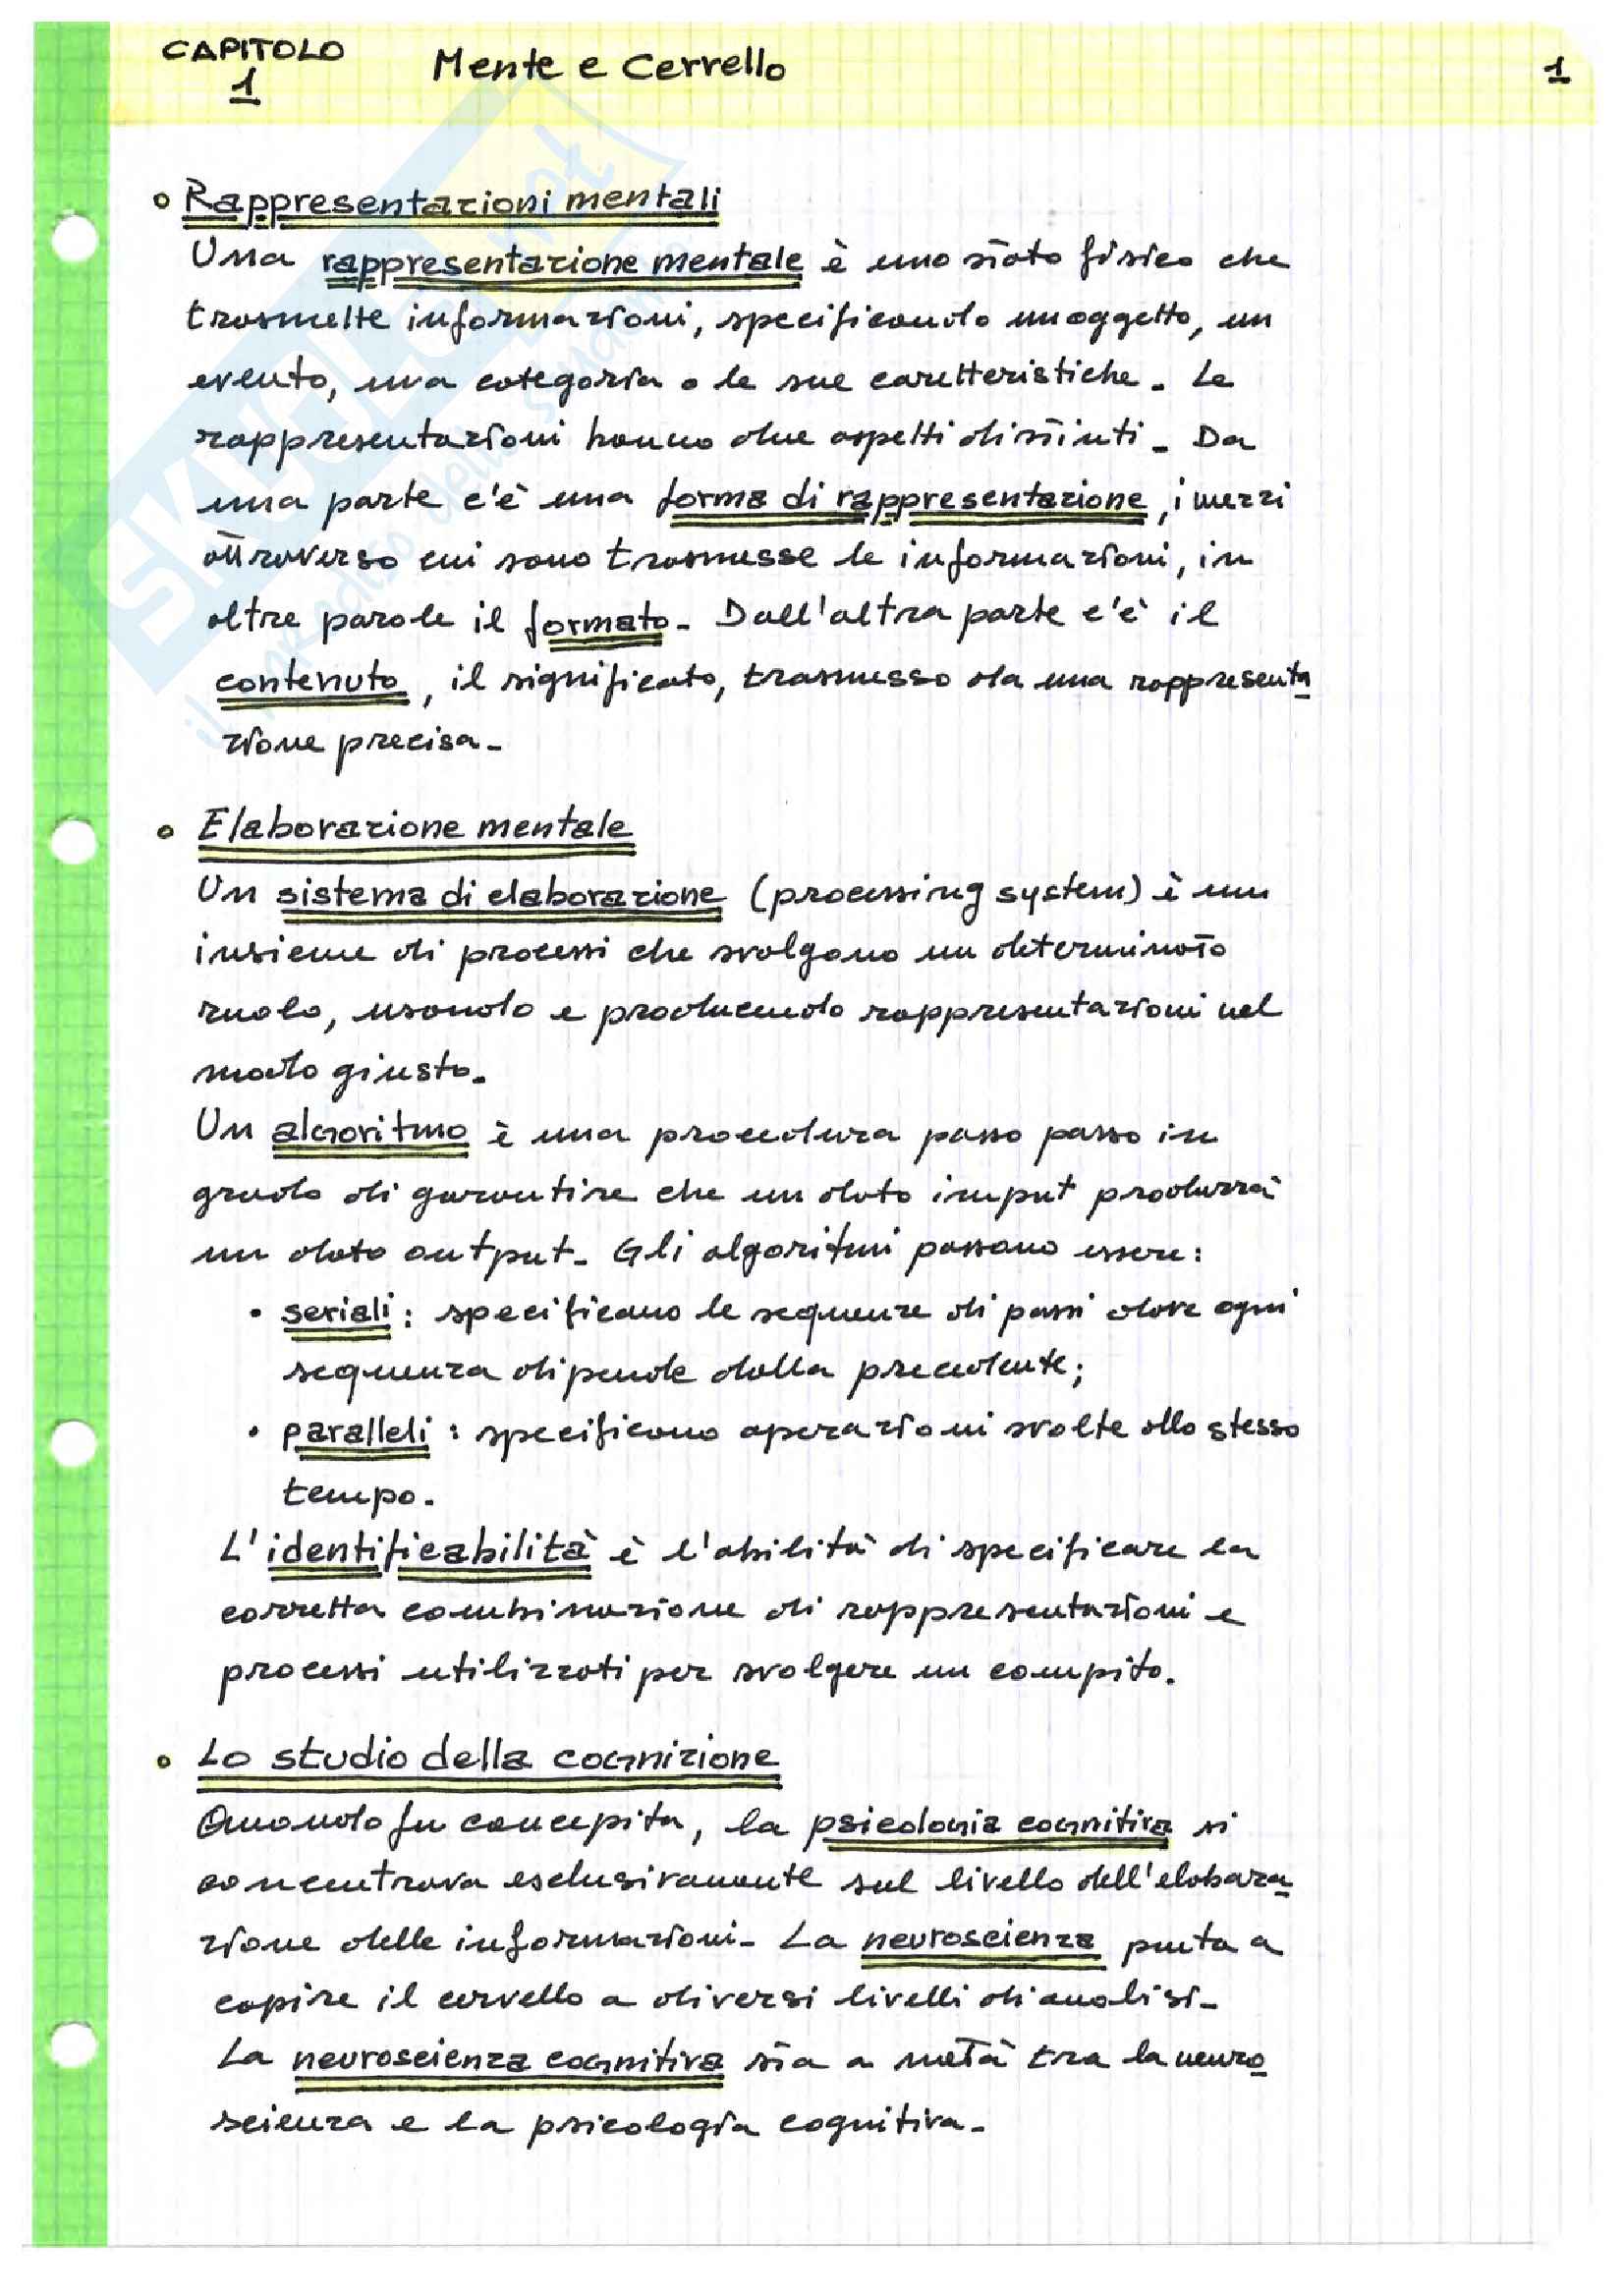 CAPITOLO
1
Mente e Cervello
1
Rappresentazioni mentali
Una rappresentazione mentale è uno stato fisico che
trasmette informazioni, specificando un oggetto, un
evento, una categoria o le sue caratteristiche. Le
rappresentazioni hanno due aspetti distinti. Da
una parte c'è una forma di rappresentazione, i mezzi
attraverso cui sono trasmesse le informazioni, in
altre parole il formato. Dall'altra parte c'è il
contenuto, il significato, trasmesso da una rappresenta
zione precisa.
Elaborazione mentale
Un sistema di elaborazione (processing system) è un
insieme di processi che svolgono un determinato
ruolo, usando e producendo rappresentazioni nel
modo giusto.
Un algoritmo è una procedura passo passo in
grado di garantire che un dato input produrrà
un dato output. Gli algoritmi possono essere:
• seriali: specificano le sequenze di passi dove ogni
sequenza dipende dalla precedente;
• paralleli: specificano operazioni svolte allo stesso
tempo.
L'identificabilità è l'abilità di specificare la
corretta combinazione di rappresentazioni e
processi utilizzati per svolgere un compito.
Lo studio della cognizione
Quando fu concepita, la psicologia cognitiva si
concentrava esclusivamente sul livello dell'elabora
zione delle informazioni. La neuroscienza punta a
capire il cervello a diversi livelli di analisi.
La neuroscienza cognitiva sta a metà tra la neuro
scienza e la psicologia cognitiva.